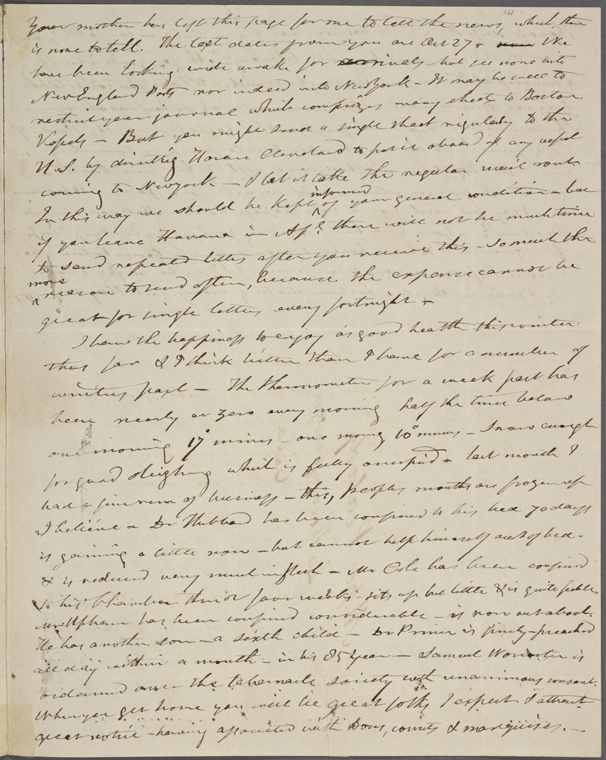 Your mother has left this page for me to tell the news, which there
is none to tell. The last dates from you are Oct 27. We
have been looking wide awake for arrivals but see none into
New England Ports nor indeed into New York - It may be well to
restrict your journal which comprizes many sheets to Boston
Vessels - But you might send a single sheet regularly to the
U.S. by directing Horace Cleveland to put it aboard of any vessel
coming to New York - & let it take the regular mail route
In this way we should be kept informed of your general condition - but
if you leave Havana in Apl. there will not be much time
to send repeated letters after you receive this - So much the
more reason to send often, because the expense cannot be
great for single letters every fortnight -
I have the happiness to enjoy as good health this winter
thus far & I think better than I have for a number of
winters past - The thermometer for a week past has
been nearly or zero every morning half the time below
one morning 17° minus - one morng 10° minus - Snow enough
for good sleighing which is fully occupied & last month I
had a fine run of business - this, Peoples mouths are frozen up
I believe & Dr Hubbard has been confined to his bed 70 days
is gaining a little now - but cannot help himself out of bed -
& is reduced very much in flesh - Mr Cole has been confined
to his Chamber three or four weeks - sits up but little & is quite feeble
Mr Upham has been confined considerable - is now out about
He has another son - a sixth child - Dr Prince is finely - preached
all day within a month - in his 85 year - Samuel Worcester is
ordained over the tabernacle society with unanimous consent.
When you get home you will be great folks I expect & attract
great notice having associated with Dons, counts & marquises. -